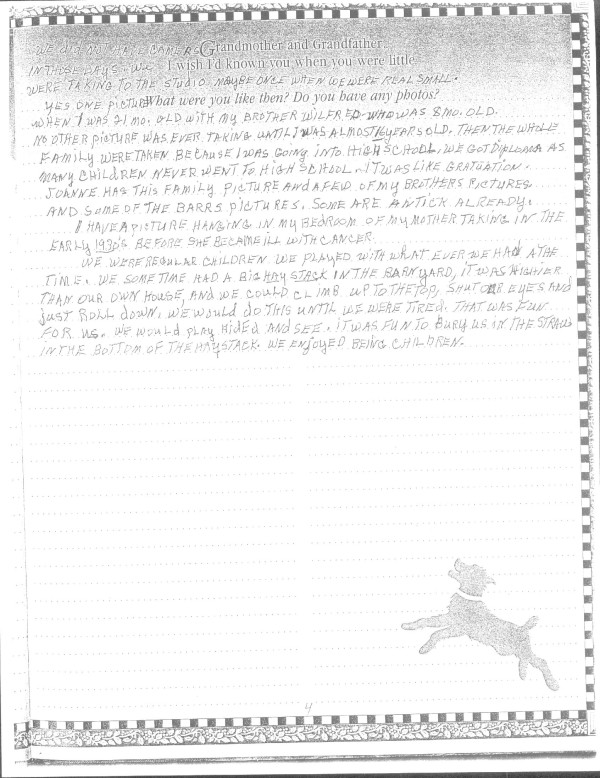 WE DID NOT HAVE CAMERS Grandmother and Grandfather,
IN THOSE DAYS. WE I wish I'd known you when you were little.
WERE TAKING TO THE STUDIO. MAYBE ONCE WHEN WE WERE REAL SMALL.
YES ONE PICTURE What were you like then? Do you have any photos?
WHEN I WAS 21 MO. OLD WITH MY BROTHER WILFRED WHO WAS 8 MO. OLD.
NO OTHER PICTURE WAS EVER TAKING UNTIL I WAS ALMOST YEARS OLD. THEN THE WHOLE
FAMILY WERE TAKEN BECAUSE I WAS GOING INTO HIGH SCHOOL. WE GOT DIPLOMA AS
MANY CHILDREN NEVER WENT TO HIGH SCHOOL. IT WAS LIKE GRATUATION.
JOANNE HAS THIS FAMILY PICTURE AND A FEW OF MY BROTHERS PICTURES
AND SOME OF THE BARRS PICTURES. SOME ARE ANTICK ALREADY.
I HAVE A PICTURE HANGING IN MY BEDROOM OF MY MOTHER TAKING IN THE
EARLY BEFORE SHE BECAME ILL WITH CANCER.
WE WERE REGULAR CHILDREN. WE PLAYED WITH WHAT EVER WE HAD A THE
TIME. WE SOME TIME HAD A BIG HAY STACK IN THE BARNYARD, IT WAS HIGHIER
THAN OUR OWN HOUSE, AND WE COULD CLIMB UP TO THE TOP, SHUT OUR EYES AND
JUST ROLL DOWN. WE WOULD DO THIS UNTIL WE WERE TIRED. THAT WAS FUN
FOR US. WE WOULD PLAY HIDED AND SEE. IT WAS FUN TO BURY US IN THE STRAW
IN THE BOTTOM OF THE HAYSTACK. WE ENJOYED BEING CHILDREN.
4